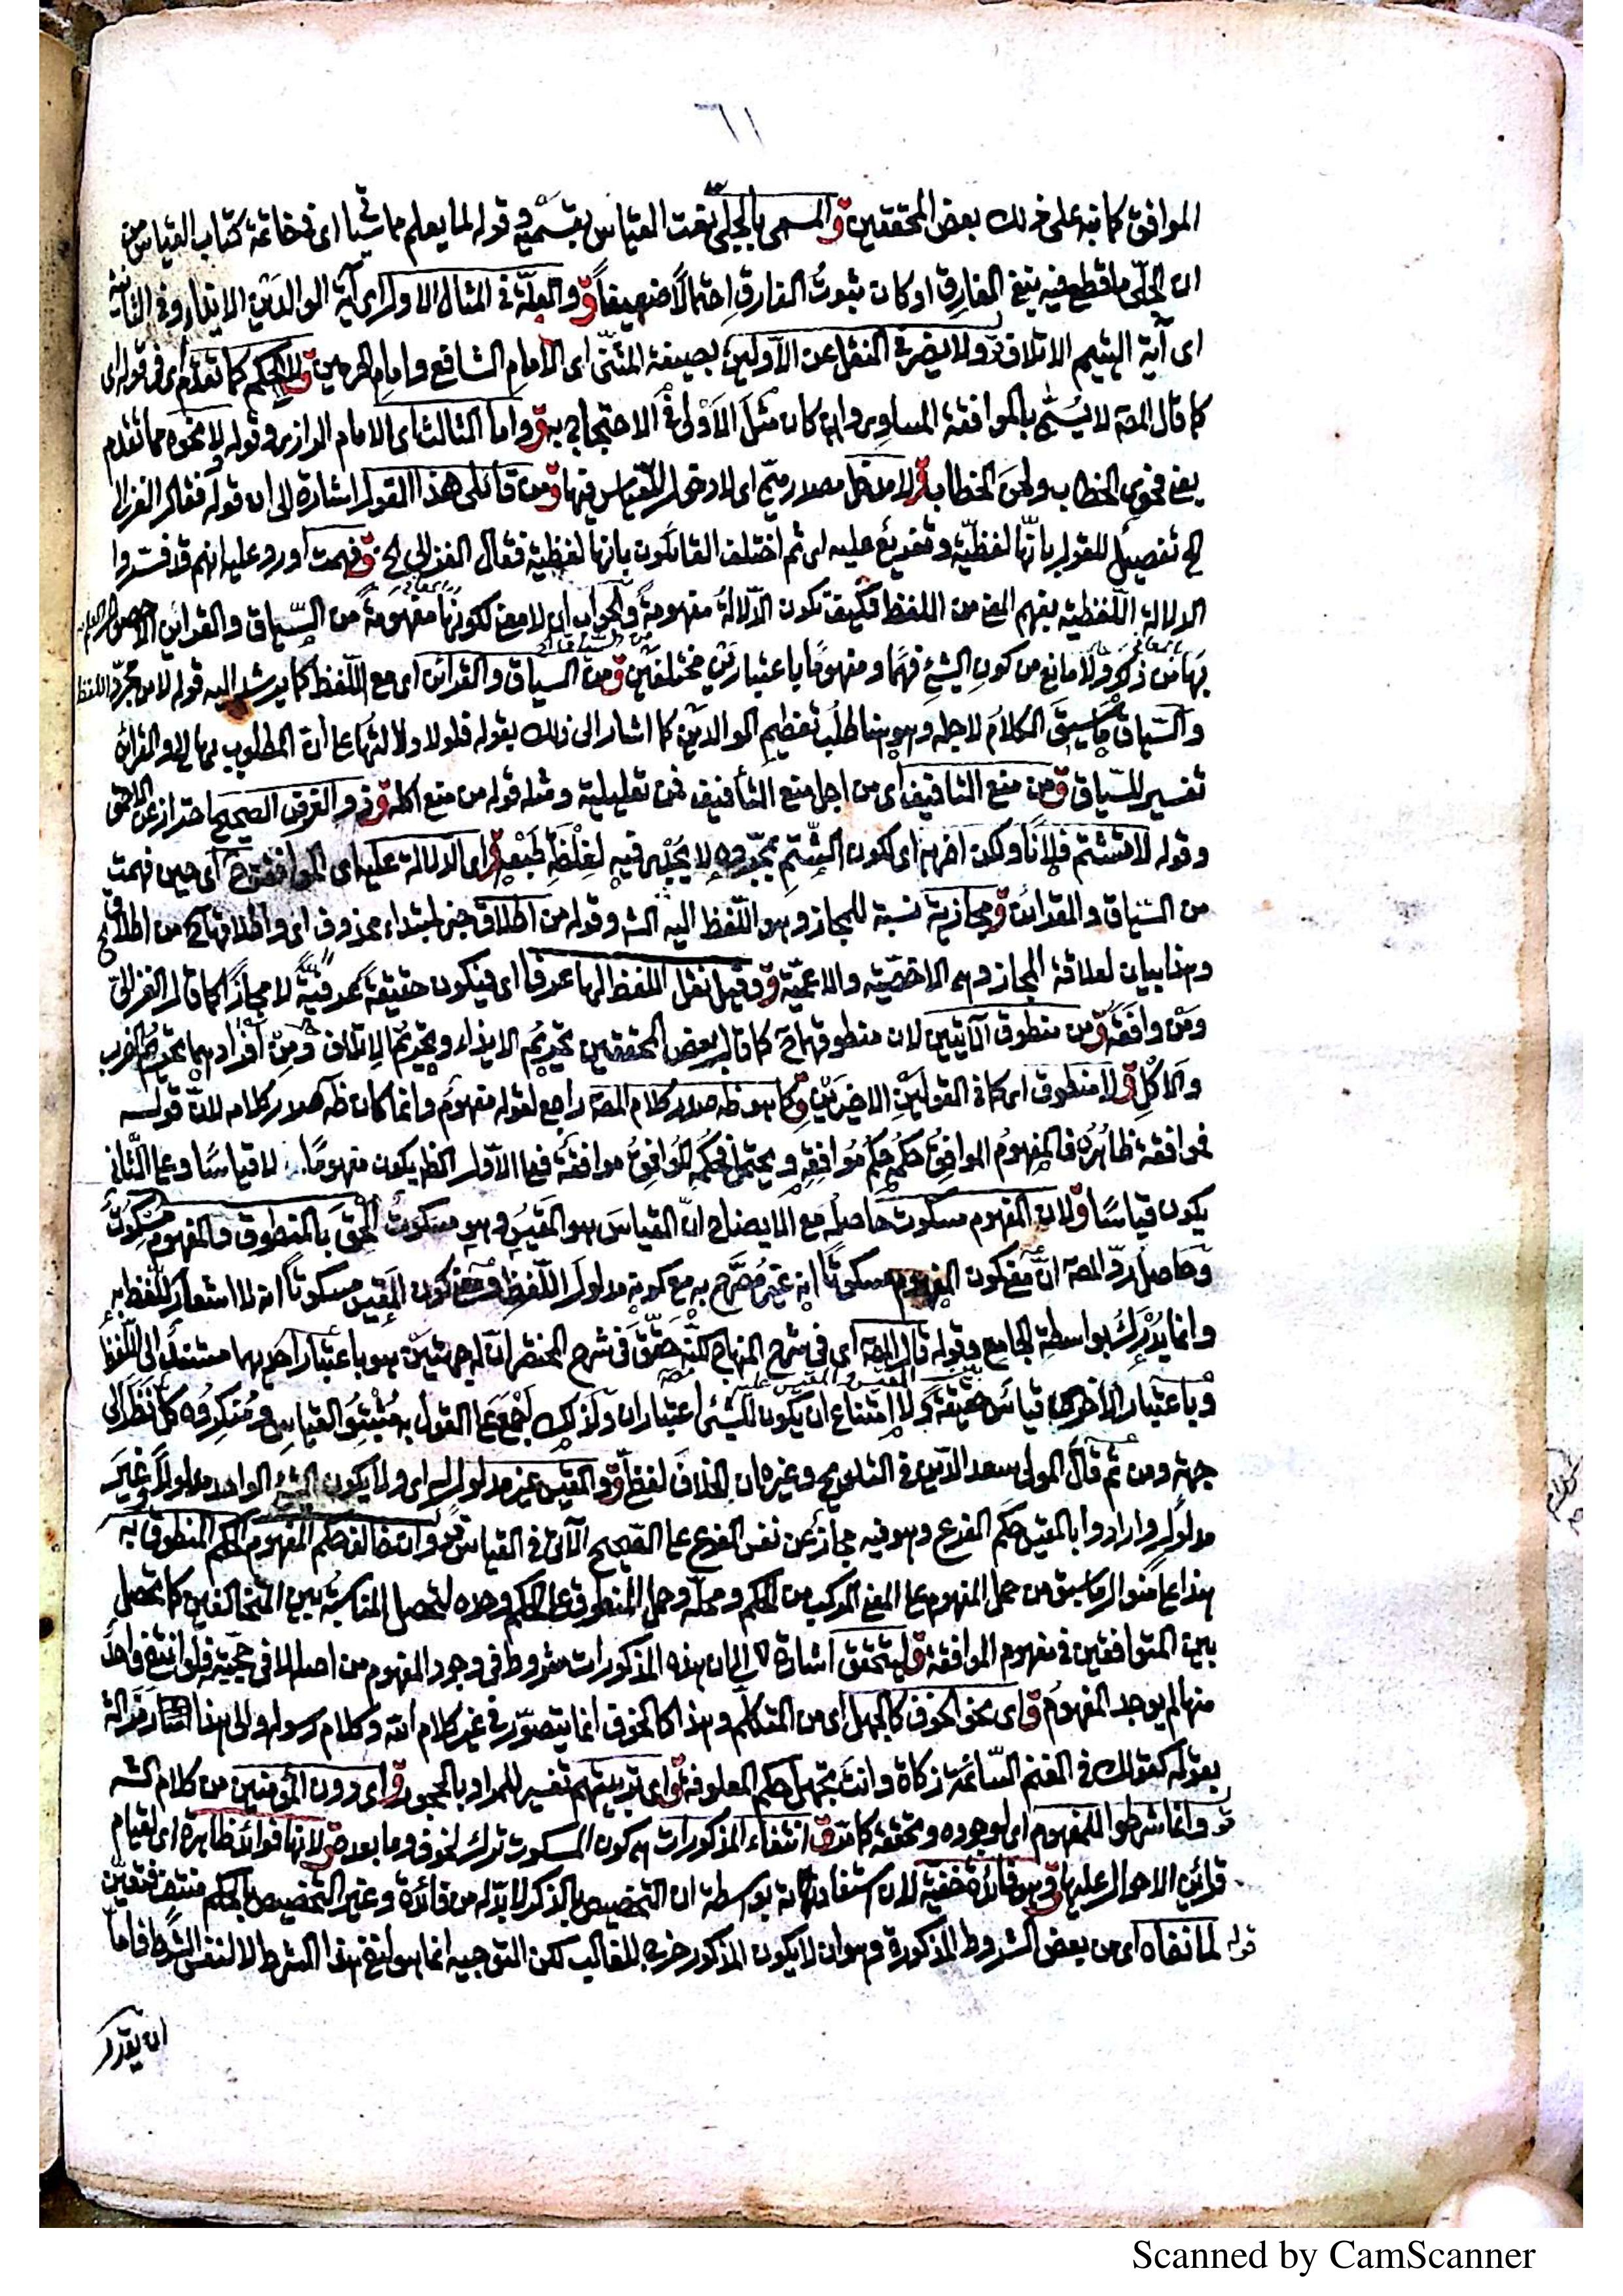 ٦١
الموافق كما نبه على ذلك بعض المحققين ق والمسمى بالجلى نعت القياس بقسميه وقوله لما يعلم مما سياتى اى فى خاتمة كتاب القياس من
ان الجلى ما قطع فيه بنفى الفارق او كان ثبوت الفارق احتمالا ضعيفا ق والعلة فى المثال الاول اى آية الوالدين الايذاء وفى الثانية
اى آية اليتيم الاتلاف ق ولا يضر فى النقل عن الاولين بصيغة المثنى اى الامام الشافعى وامام الحرمين ق كما تقدم اى فى قوله اى
كما قال المصـ لا يسمى بالموافقة المساوى وان كان مثل الاولى فى الاحتجاج به ق واما الثالث اى الامام الرازى وقوله نحوه مما تقدم
يعنى فحوى الخطاب ولحن الخطاب ق لا مدخل مصدر ميمى اى لا دخل للقياس فيها ق ومن قائلى هذا القول اشارة الى ان قوله فقال الغزالى
الخ تفصيل للقول بانها لفظية وتفريع عليه اى ثم اختلف القائلون بانها لفظية فقال الغزالى الخ ق فهمت اورد عليه انهم قد فسروا
الدلالة اللفظية بفهم المعنى من اللفظ فكيف تكون الدلالة مفهومة والجواب ان لا معنى لكونها مفهومة من السياق والقرائن الا
بها من ذكر ولا مانع من كون الشئ فهما ومفهوما باعتبارين مختلفين ق ومن السياق والقرائن اى مع اللفظ كما يرشد اليه قوله لا من مجرد اللفظ
والسياق ما سيق الكلام لاجله وهو هنا طلب تعظيم الوالدين كما اشار الى ذلك بقوله فلولا دلالتها على ان المطلوب بهما الخ والقرائن
تفسير للسياق ق ومن منع التافيف اى من اجل منع التأفيف فمن تعليلية ومثله قوله من منع اكله ق ذو الغرض الصحيح احتراز عن
وقوله لا تشتم فلانا ولكن اضربه اى لكون الشتم بمجرده لا يجدى فيه لغلظ طبعه ق اى الدلالة عليها اى الموافقة ح اى حين فهمت
من السياق والقرائن ق مجازية نسبة للمجاز وهو اللفظ اليه الشـ وقوله من اطلاق خبر لمبتداء محذوف اى واطلاقها ح من اطلاق الخ
وهذا بيان لعلاقة المجاز وهى الاخصية والاعمية ق وقيل نقل اللفظ لها عرفا اى فيكون حقيقة عرفية لا مجازا كما قال الغزالى
ومن وافقه ق من منطوق الآيتين لان منطوقهما ح كما قال بعض المحققين تحريم الايذاء وتحريم الاتلاف ومن افرادهما تحريم الضرب
والاكل ق لا منطوق اى كما فى القولين الاخيرين ق كما هو ظـ صدر كلام المصـ راجع لقوله مفهوم وانما كان ظـ صدر كلامه لان قوله
فموافقة ظاهره فالمفهوم الموافق حكمه حكم موافقه ويحتمل فحكمه الموافق موافقة فعلى الاول الظـ يكون مفهوما لا قياسا وعلى الثانى
يكون قياسا ق ولان المفهوم مسكوت حاصله مع الايضاح ان القياس هو المقيس وهو مسكوت الحق بالمنطوق والمفهوم مسكوت
وحاصل رد المصـ ان معنى كون المفهوم مسكوتا انه غير مصرح به مع كونه مدلول اللفظ ومعنى كون المقيس مسكوتا انه لا اشعار للفظ به
وانما يدرك بواسطة الجامع وقوله قال المصـ اى فى شرح المنهاج لكنه حقق فى شرح المختصر ان له جهتين هو باعتبار احدهما مستند الى اللفظ
وباعتبار الاخرى قياس حقيقة ولا امتناع ان يكون للشئ اعتباران ولذلك اجمع على القول به مثبتو القياس ومنكروه كل نظر الى
جهة ومن ثم قال المولى سعد الدين فى التلويح وغيره ان الخلاف لفظى ق والمقيس غير مدلول اى ولا يكون الشئ الواحد مدلولا وغير
مدلول وارادوا بالمقيس حكم الفرع وهو فيه مجاز عن نفس الفرع على الصحيح الآتى فى القياس ق وان خالف حكم المفهوم الحكم المنطوق به
هذا على منوال ما سبق من حمل المفهوم على المعنى المركب من الحكم ومحله وحمل المنطوق على الحكم وحده لتحصل المناسبة بين المتخالفين كما تحصل
بين المتوافقين فى مفهوم الموافقة ق ليتحقق اشارة الى ان هذه المذكورات شروط فى وجود المفهوم من اصله لا فى حجيته فلو انتفى واحد
منها لم يوجد المفهوم ق اى نحو الخوف كالجهل اى من المتكلم وهذا كالخوف انما يتصور فى غير كلام الله وكلام رسوله والى هذا اشار
بقوله كقولك فى الغنم السائمة زكاة وانت تجهل حكم المعلوفة ق اى تربيتهم تفسير للمراد بالحجور ق اى دون المؤمنين من كلام الشـ
قو وانما شرطوا للمفهوم اى لوجوده وتحققه كما مر ق انتفاء المذكورات هى كون المسكوت ترك لخوف وما بعده ق لانها فوائد ظاهرة اى لقيام
قرائن الاحوال عليها ق وهو فائدة خفية لان استفادتها بواسطة ان التخصيص بالذكر لا بد له من فائدة وغير التخصيص بالحكم منتف فتعين
قوله لما نفاه اى من بعض الشروط المذكورة وهو ان لا يكون المذكور خرج للغالب لكن التوجيه انما هو لنفى هذا الشرط لا لنفس الشرط فاما
ان يقدر